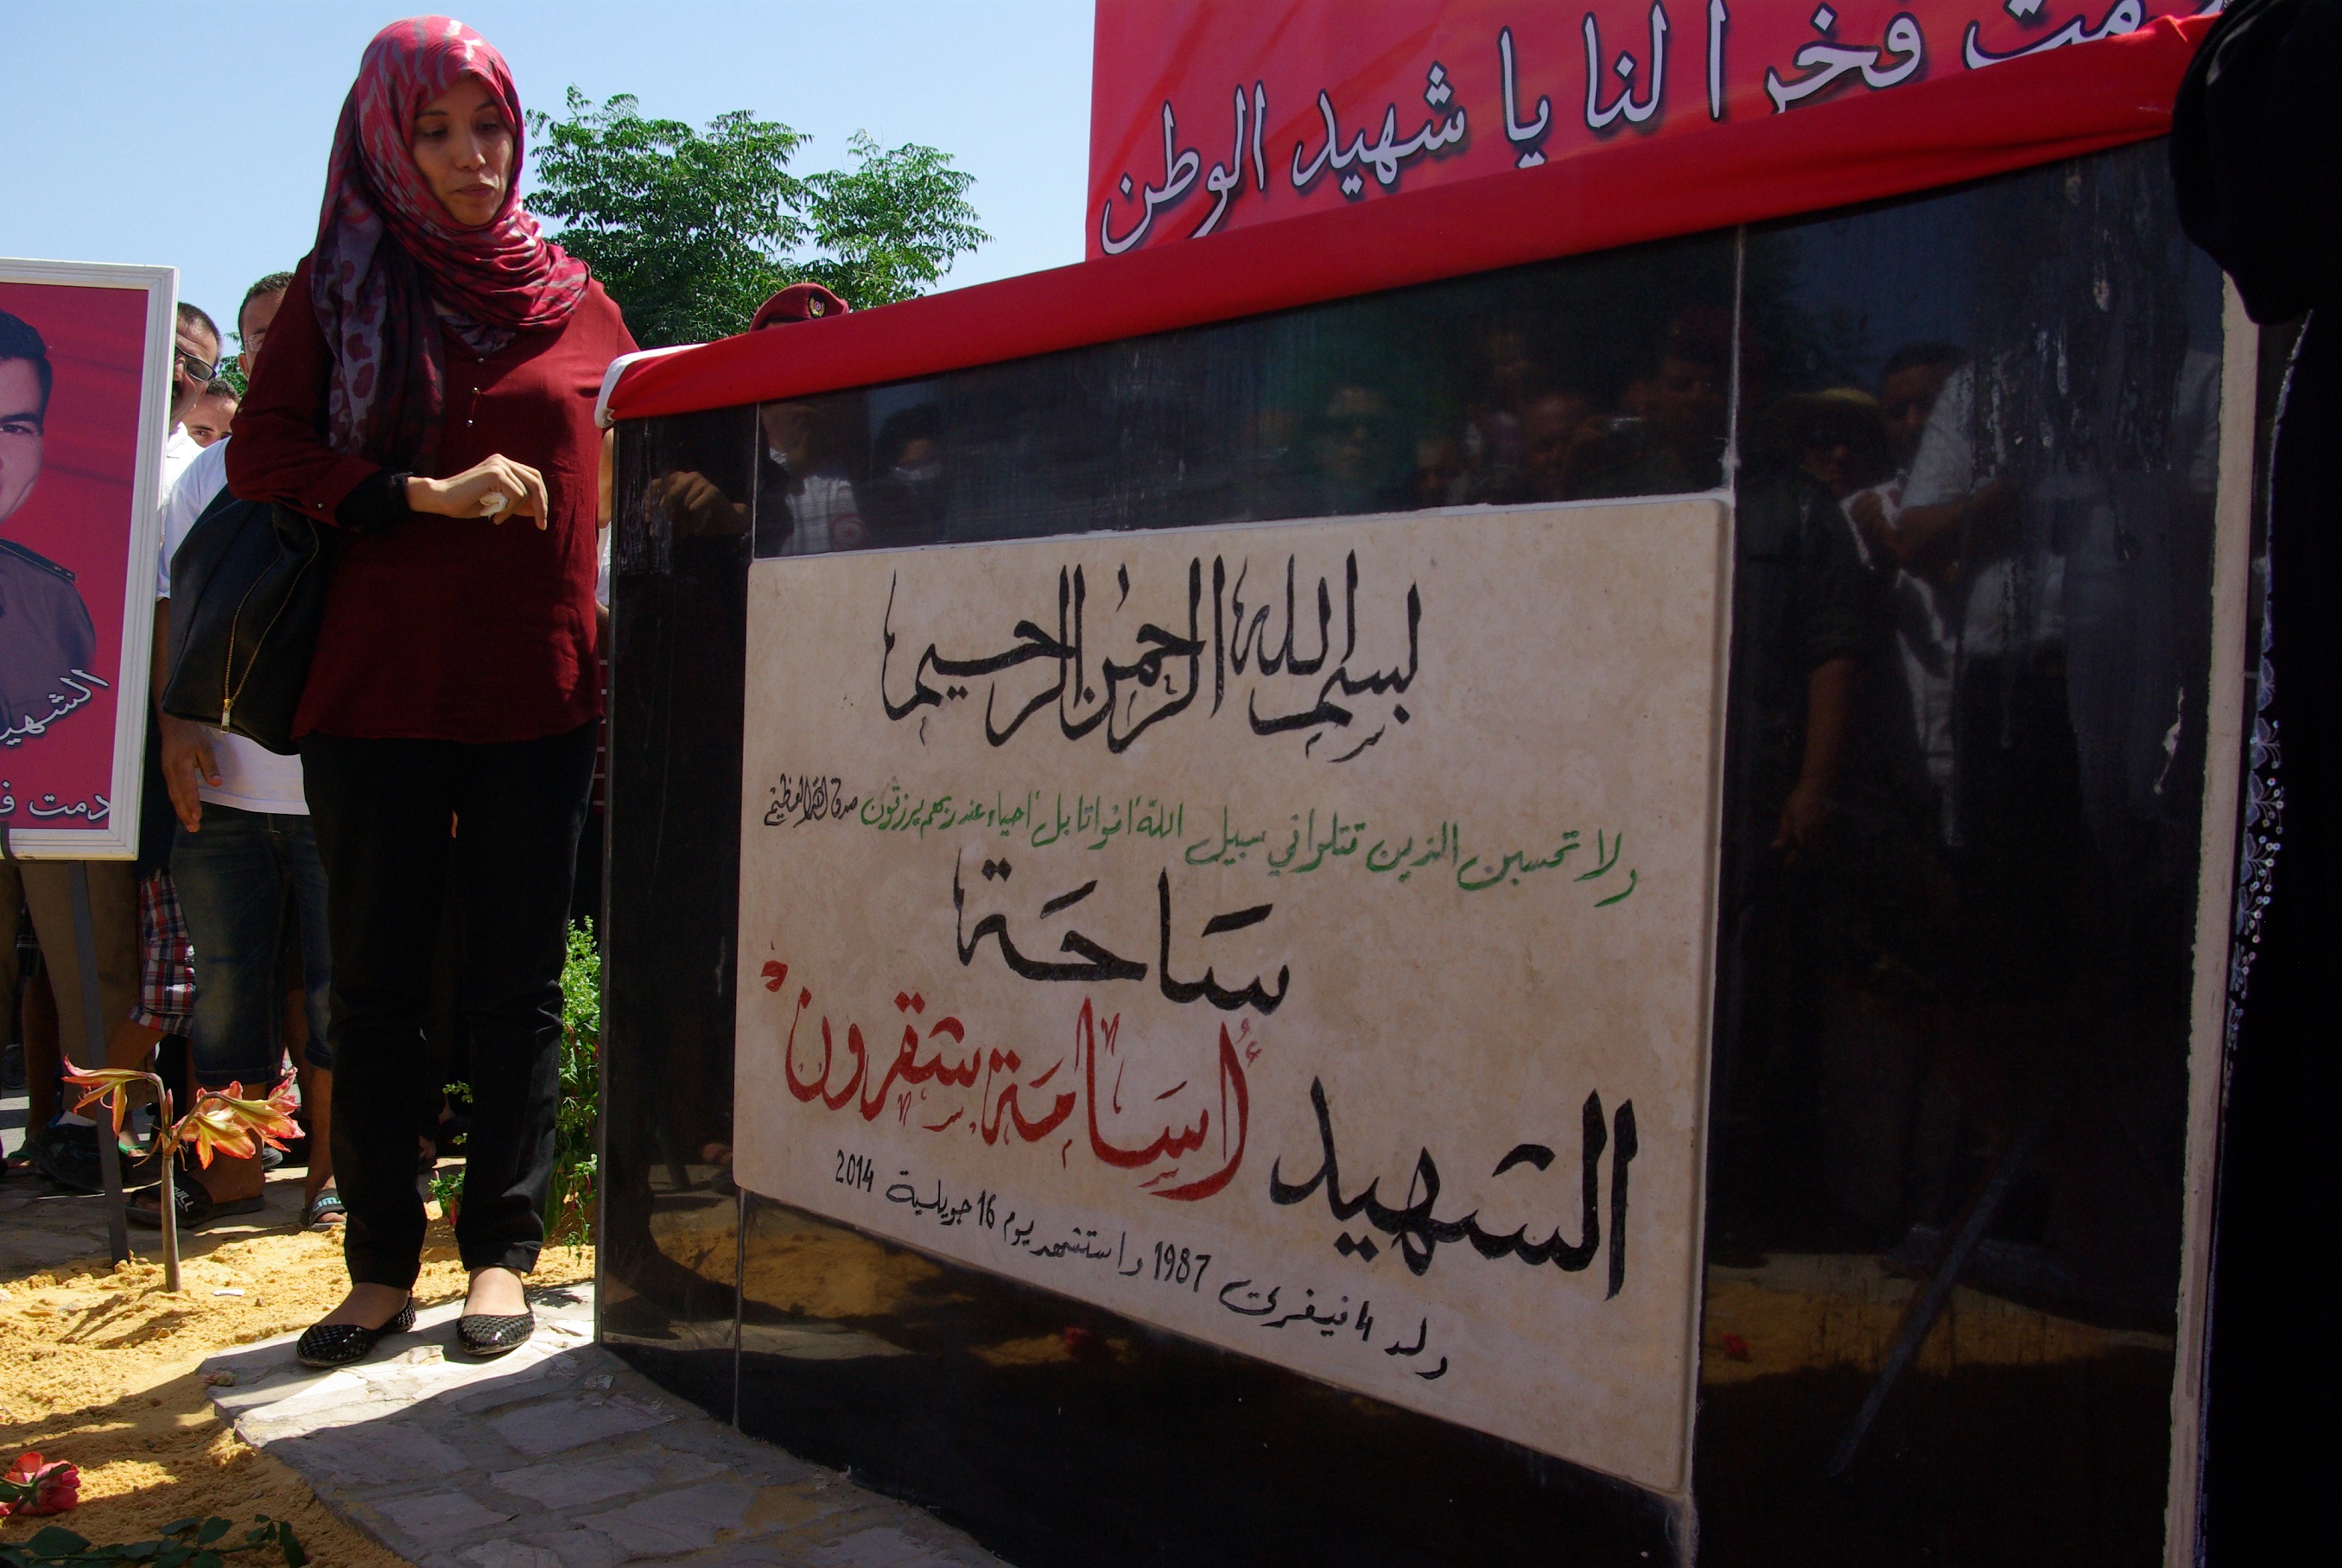 دمت فخرا لنا يا شهيد الوطن
بسم الله الرحمن الرحيم
ولا تحسبن الذين قتلوا في سبيل الله أمواتا بل أحياء عند ربهم يرزقون صدق الله العظيم
سَاحَة
الشهيد أسَامَة شقرون
ولد 4 فيفري 1987 واستشهد يوم 16 جويلية 2014
الشهيد
دمت ف